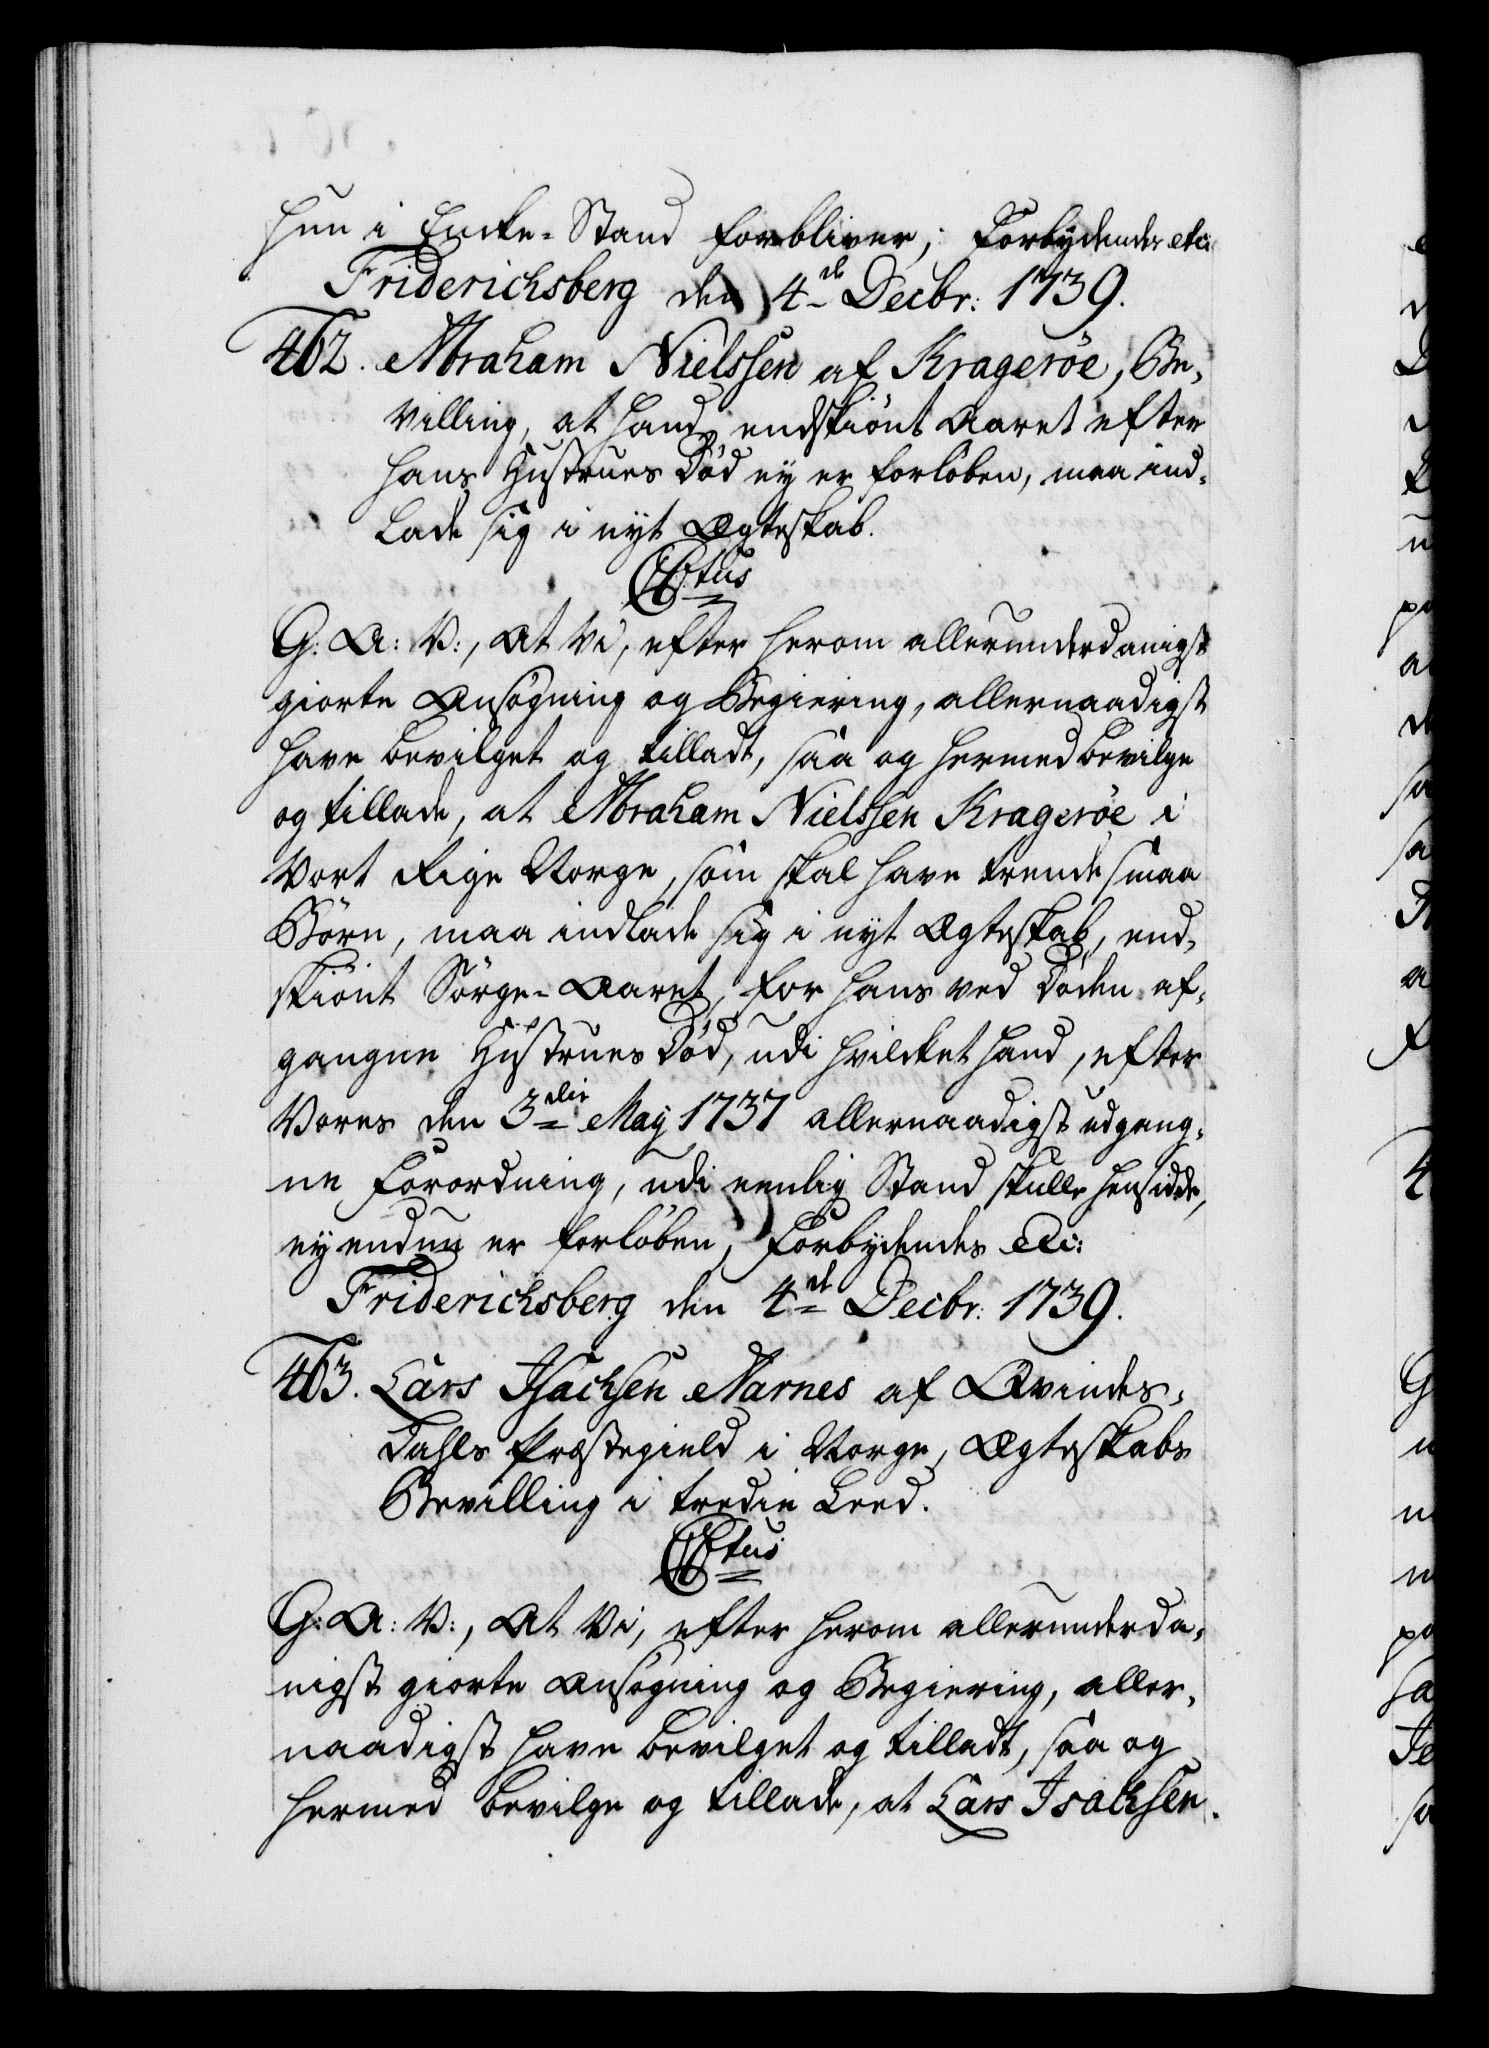 hun i Encke-Stand forbliver; Forbydendes etc:
Friderichsberg den 4de Decbr: 1739.
462. Abraham Nielssen af Kragerøe, Be-
villing, at hand, endskiönt Aaret efter
hans Hustrues Död ey er forløben, maa ind-
lade sig i nyt Ægteskab.
CCtus
G: A: V:, At Vi, efter herom allerunderdanigst
giorte Ansögning og Begiering, allernaadigst
have bevilget og tilladt, saa og hermed bevilge
og tillade, at Abraham Nielssen Kragerøe i
Vort Rige Norge, som skal have trende smaa
Börn, maa indlade sig i nyt Ægteskab, end-
skiönt Sörge-Aaret, for hans ved Döden af-
gangne Hustrues Död, udi hvilcket hand, efter
Vores den 3die May 1737 allernaadigst udgang-
ne Forordning, udi eenlig Stand skulle hensidde,
ey endnu er forløben; Forbydendes etc:
Friderichsberg den 4de Decbr: 1739.
463. Lars Isachsen Narnes af Qvindes-
dahls Præstegield i Norge, Ægteskabs
Bevilling i tredie Leed.
CCtus
G: A: V:, At Vi, efter herom allerunderda-
nigst giorte Ansögning og Begiering, aller-
naadigst have bevilget og tilladt, saa og
hermed bevilge og tillade, at Lars Isachsen